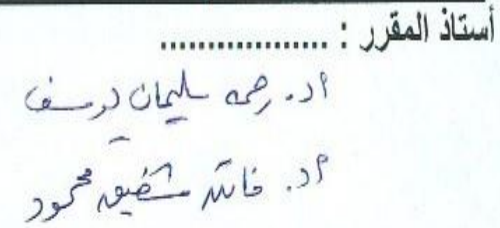 أستاذ المقرر : ..................
أ.د. رحمه سليمان يوسف
أ.د. فاتن شفيق محمود